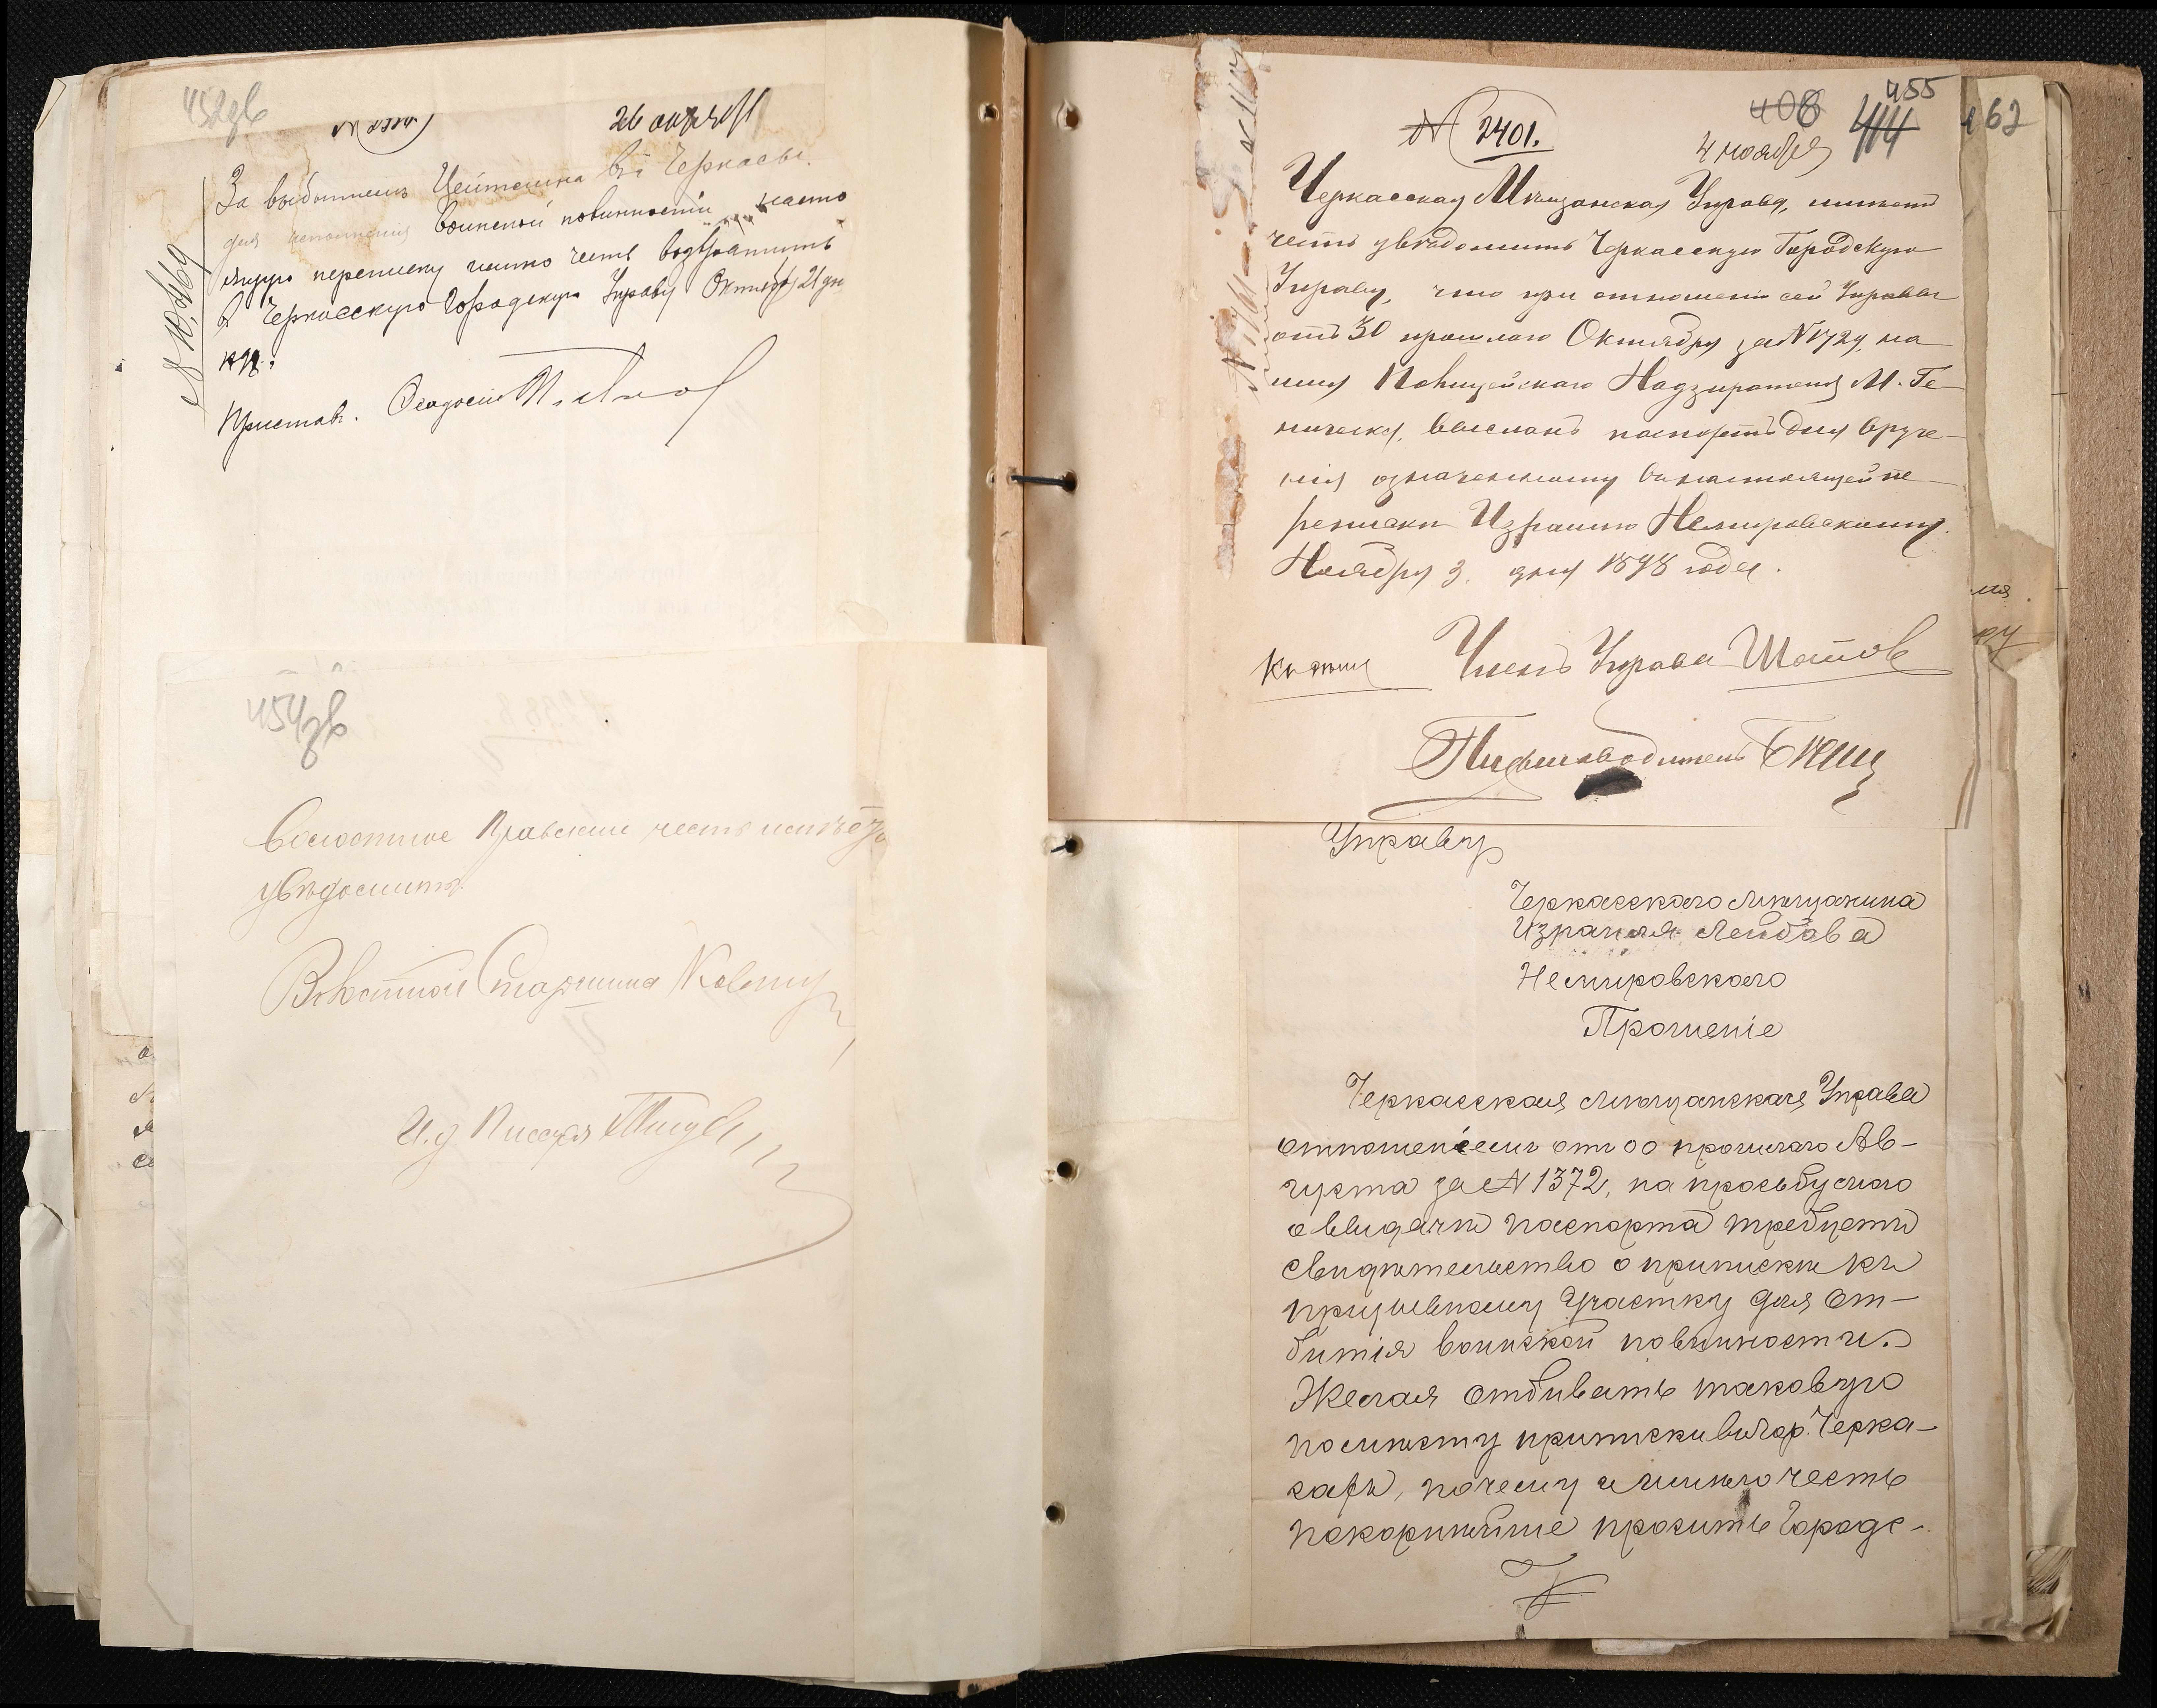 452 зв
26 октября
За выбытіемъ Цейтлина въ Черкассы
для исполненія воинской повинности насто
ящую переписку имѣю честь возвратить
въ Черкасскую Городскую Управу Октября 21 дня
Приставъ.
№ 10469
454 зв
Волостное Правленіе честь имѣетъ
увѣдомить.
Волостной Старшина
И. д. Писаря
№ 2401.
408
414
455
4 ноября
462
Черкасская Мѣщанская Управа, имѣетъ
честь увѣдомить Черкасскую Городскую
Управу, что при отношеніи сей Управы
отъ 30 прошлаго Октября за № 1729, на
имя Полицейскаго Надзирателя М. Ге-
ническа, высланъ паспортъ для вруче-
нія означенному въ настоящей пе-
репискѣ Израилю Немировскому.
Ноября 3 дня 1898 года.
Членъ Управы
Письмоводитель
Управу
Черкасскаго мѣщанина
Израиля Лейбова
Немировскаго
Прошеніе
Черкасская мѣщанская Управа
отношеніемъ отъ 00 прошлаго Ав-
густа за № 1372, на просьбу мою
о выдачѣ паспорта требуетъ
свидѣтельство о припискѣ къ
призывному участку для от-
битія воинской повинности.
Желая отбывать таковую
по мѣсту приписки въ гор. Черка-
сахъ, почему и имѣю честь
покорнѣйше просить Городс-